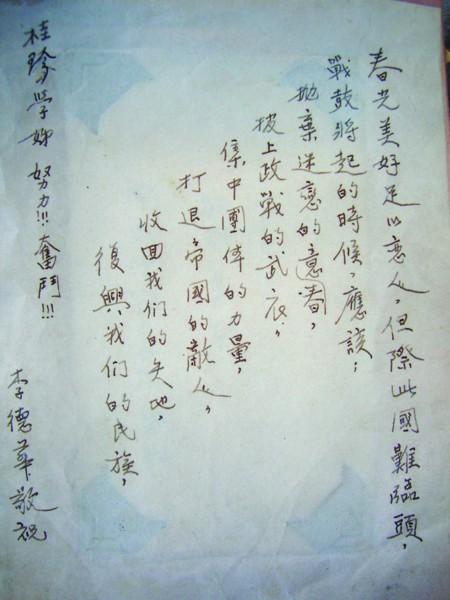 春光美好足以恋人，但际此國難臨頭，
戰鼓將起的時候，應該；
抛棄迷戀的意春，
披上政戰的武衣，
集中團体的力量，
打退，帝國的敵人，
收回我们的失地，
復興，我们的民族，
桂珍學姊 努力!!! 奮鬥!!!
李德華敬祝